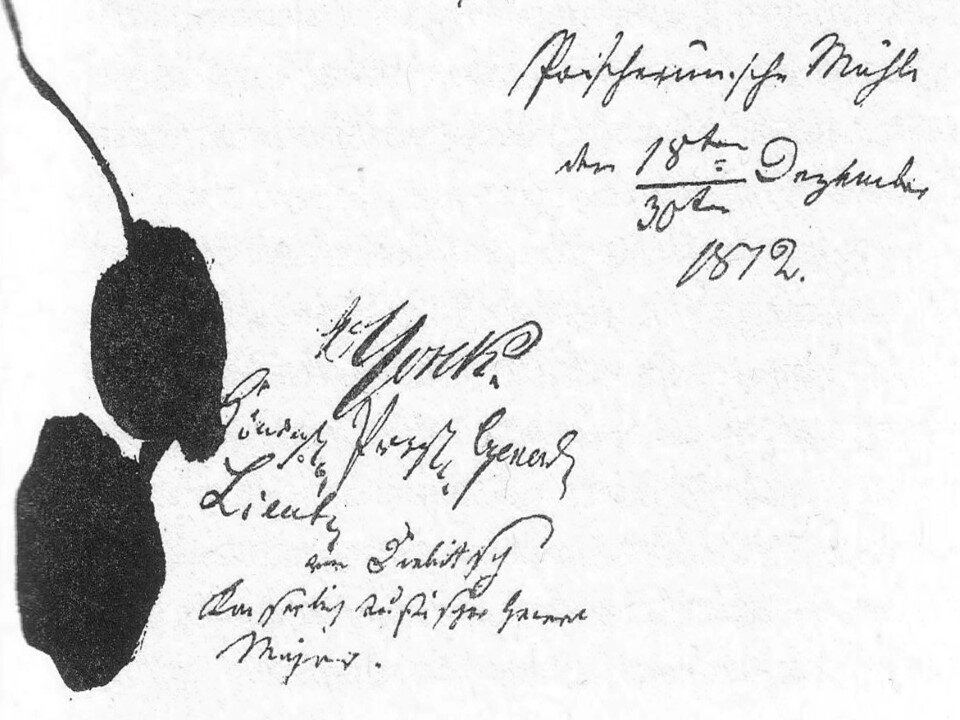 Poscherunsche Mühle
den 18ten Dezember
30ten
1812.
v Yorck.
Königl. Preuß. General
Lieut.
von Diebitsch
Kaiserlich russischer General
Major.